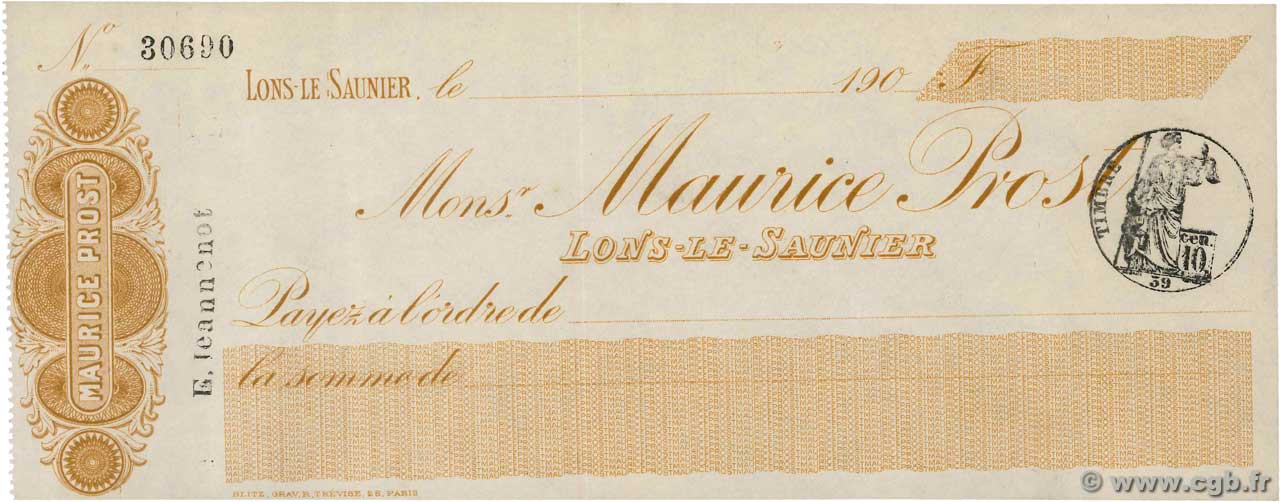 No 30690
LONS-LE SAUNIER, le 190 F
MAURICE PROST
E. Jeannenot
Monsr. Maurice Prost
LONS-LE-SAUNIER
TIMBRE
cen. 10
39
Payez à l'ordre de
la somme de
BLITZ, GRAV, R. TRÉVISE, 28, PARIS
© www.cgb.fr